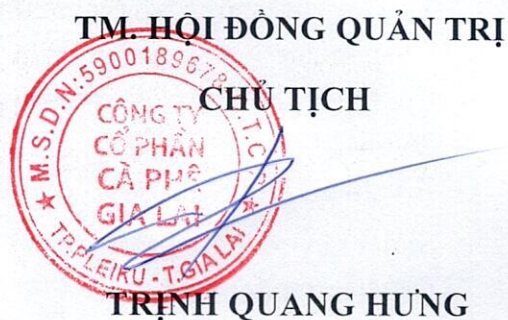 TM. HỘI ĐỒNG QUẢN TRỊ
CHỦ TỊCH
M.S.D.N:5900189678
CÔNG TY
CỔ PHẦN
CÀ PHÊ
GIA LAI
TP.PLEIKU - T.GIA LAI
TRỊNH QUANG HƯNG